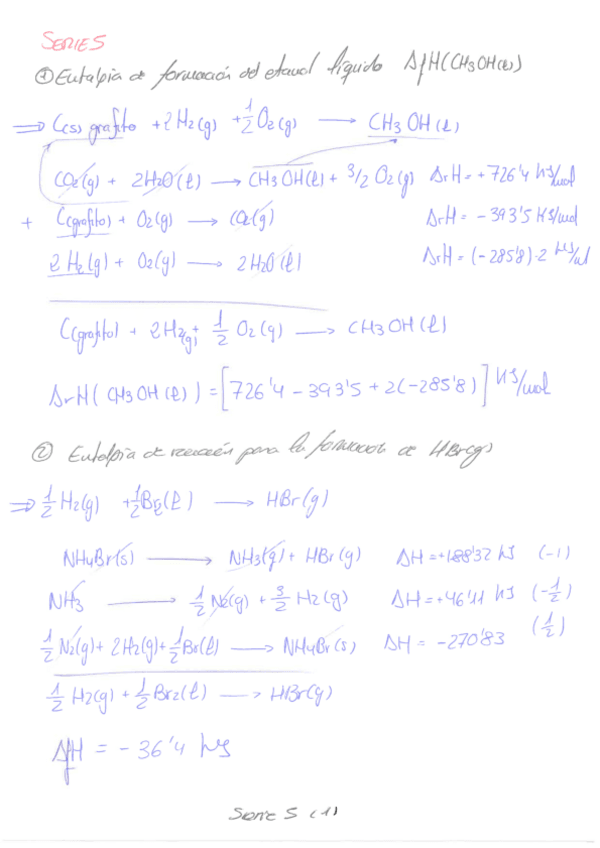 SERIE 5
① Entalpia de formación del etanol líquido ΔfH(CH3OH(l))
⇒ C(s) grafito + 2H2(g) + 1/2 O2(g) ⟶ CH3OH(l)
CO2(g) + 2H2O(l) ⟶ CH3OH(l) + 3/2 O2(g) ΔrH = +726'4 KJ/mol
+ C(grafito) + O2(g) ⟶ CO2(g) ΔrH = -393'5 KJ/mol
2H2(g) + O2(g) ⟶ 2H2O(l) ΔrH = (-285'8)·2 KJ/ml
C(grafito) + 2H2(g) + 1/2 O2(g) ⟶ CH3OH(l)
ΔrH(CH3OH(l)) = [726'4 - 393'5 + 2(-285'8)] KJ/mol
② Entalpia de reacción para la formación de HBr(g)
⇒ 1/2 H2(g) + 1/2 Br2(l) ⟶ HBr(g)
NH4Br(s) ⟶ NH3(g) + HBr(g) ΔH = +188'32 KJ (-1)
NH3 ⟶ 1/2 N2(g) + 3/2 H2(g) ΔH = +46'11 KJ (-1/2)
1/2 N2(g) + 2H2(g) + 1/2 Br(l) ⟶ NH4Br(s) ΔH = -270'83 (1/2)
1/2 H2(g) + 1/2 Br2(l) ⟶ HBr(g)
ΔfH = -36'4 KJ
Serie 5 (1)